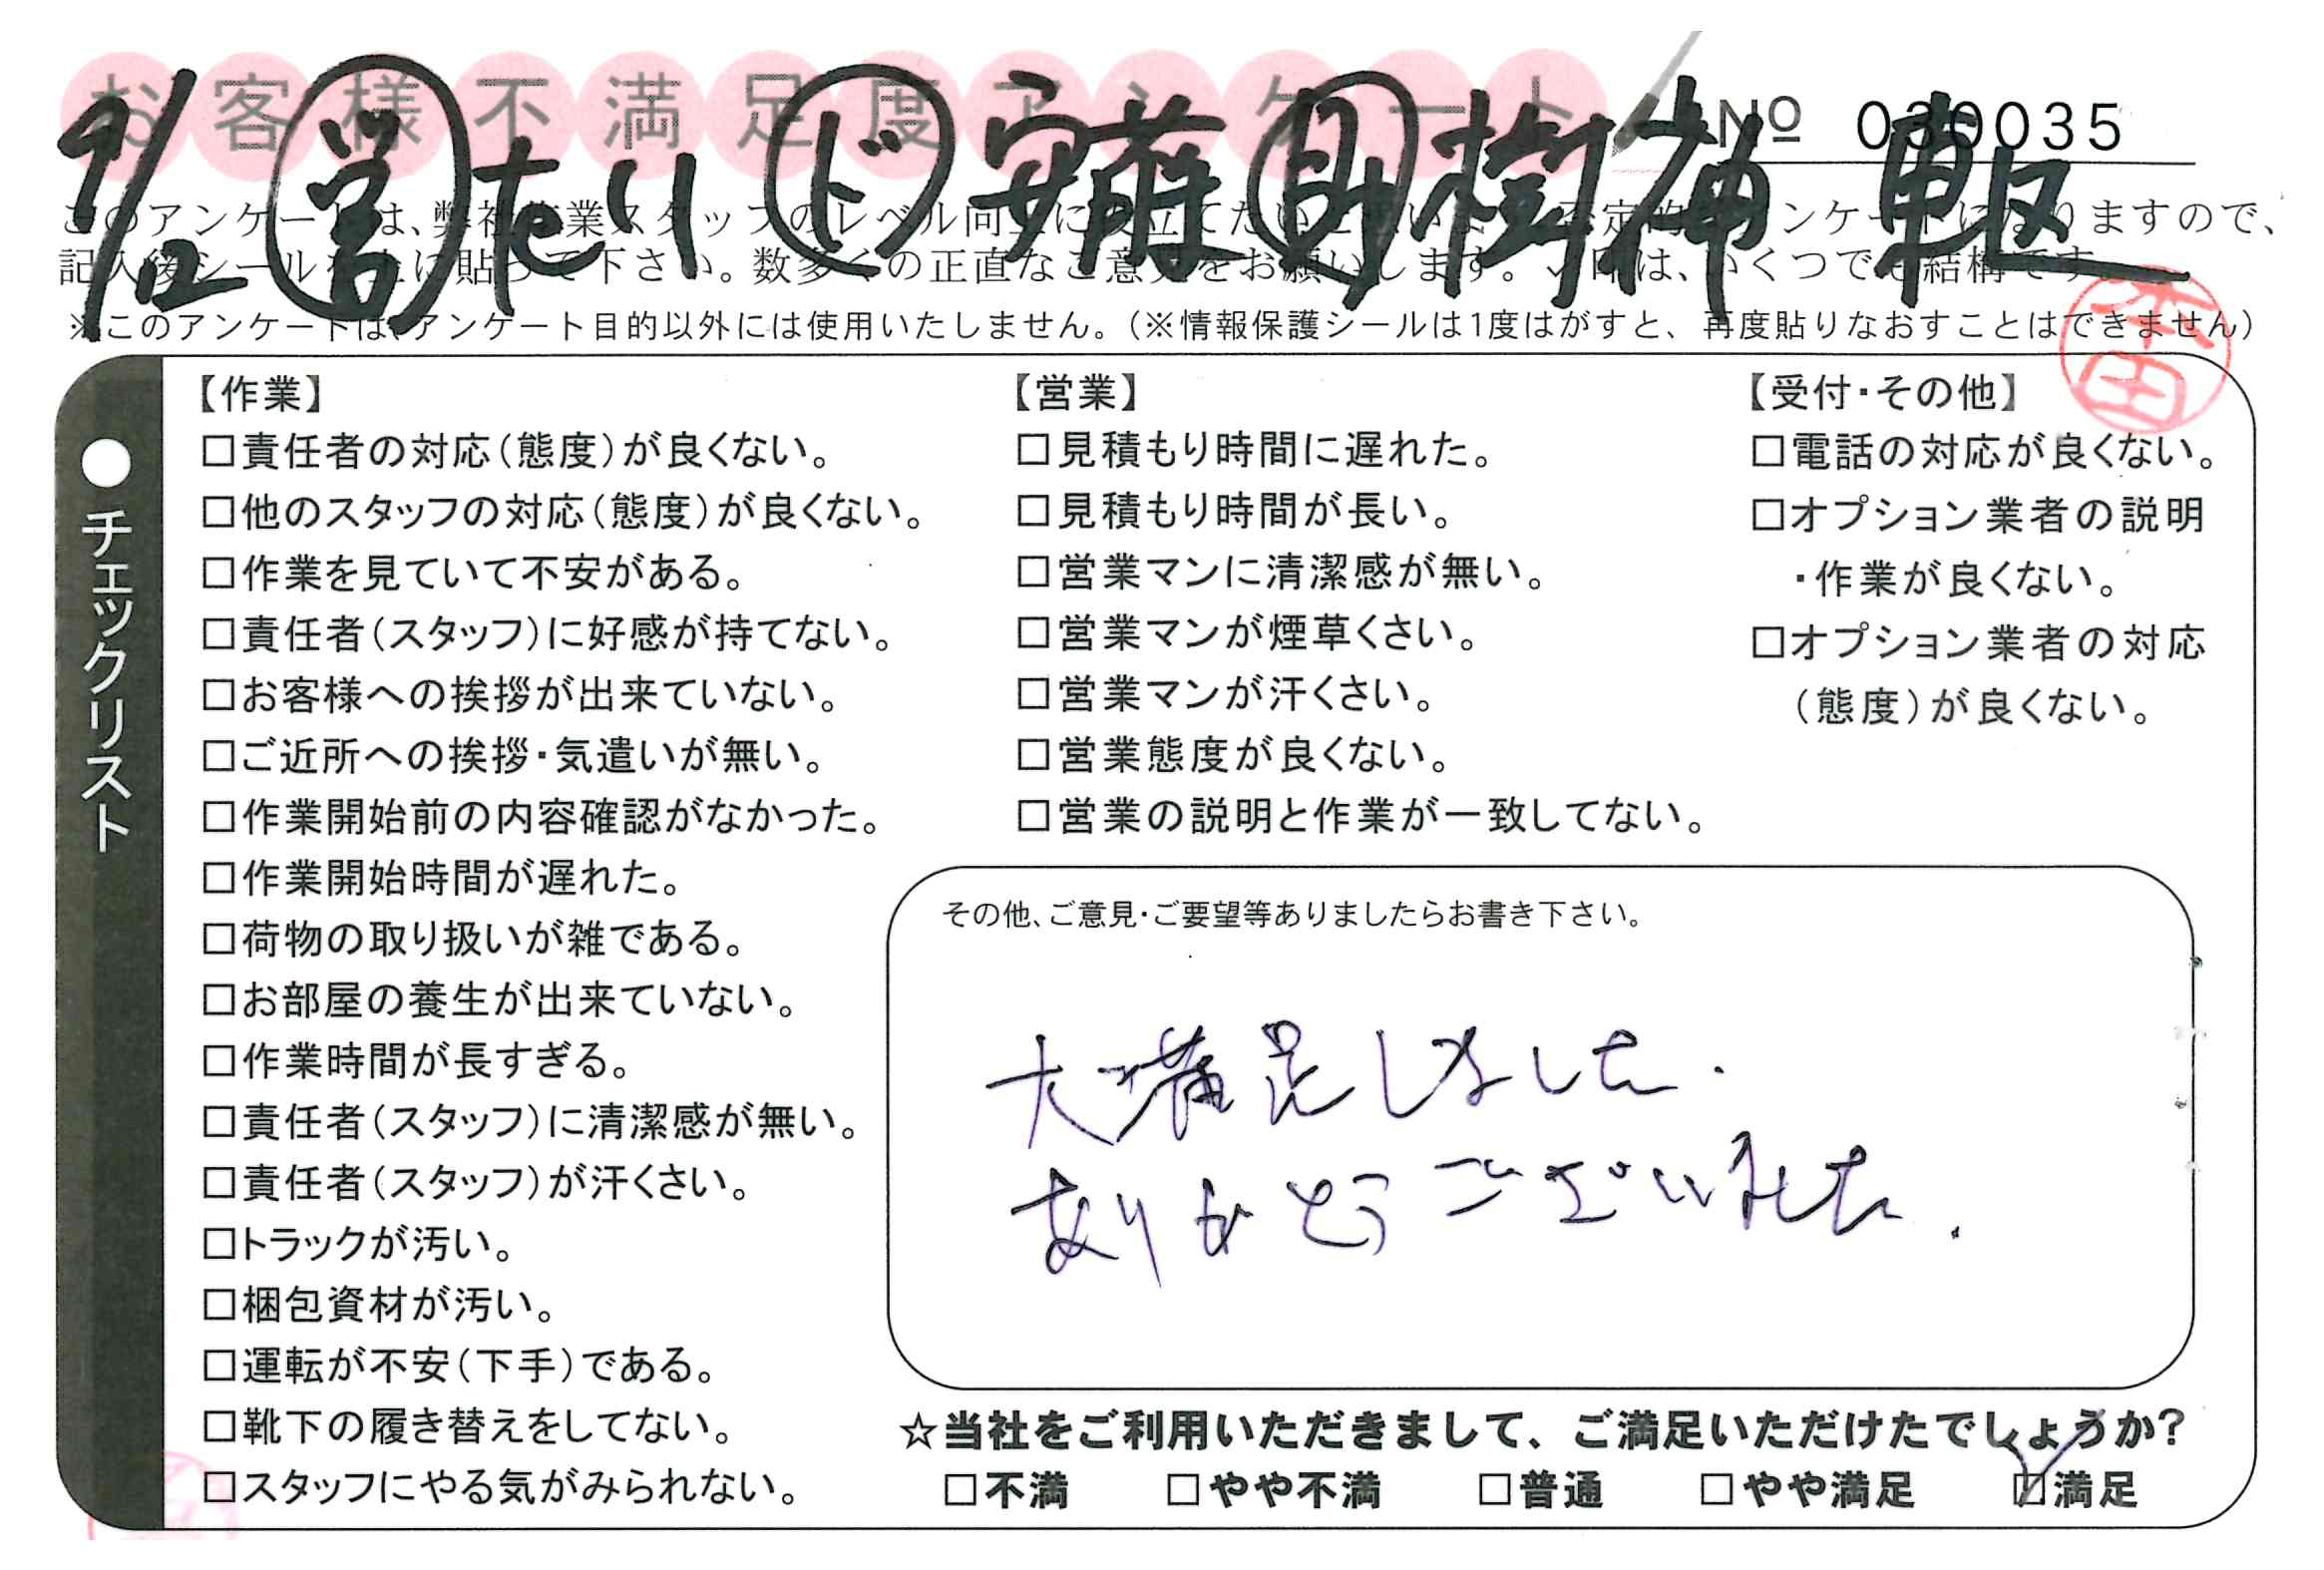 お客様不満足度アンケート
№ 030035
9/12 営 たい ド 安藤 助 樹神 車区
このアンケートは、弊社作業スタッフのレベル向上に役立てたいと思います。否定的なアンケートになりますので、
記入後シールを上に貼って下さい。数多くの正直なご意見をお願いします。✓印は、いくつでも結構です。
※このアンケートは、アンケート目的以外には使用いたしません。(※情報保護シールは1度はがすと、再度貼りなおすことはできません)
本田
●チェックリスト
【作業】
□責任者の対応(態度)が良くない。
□他のスタッフの対応(態度)が良くない。
□作業を見ていて不安がある。
□責任者(スタッフ)に好感が持てない。
□お客様への挨拶が出来ていない。
□ご近所への挨拶・気遣いが無い。
□作業開始前の内容確認がなかった。
□作業開始時間が遅れた。
□荷物の取り扱いが雑である。
□お部屋の養生が出来ていない。
□作業時間が長すぎる。
□責任者(スタッフ)に清潔感が無い。
□責任者(スタッフ)が汗くさい。
□トラックが汚い。
□梱包資材が汚い。
□運転が不安(下手)である。
□靴下の履き替えをしてない。
□スタッフにやる気がみられない。
【営業】
□見積もり時間に遅れた。
□見積もり時間が長い。
□営業マンに清潔感が無い。
□営業マンが煙草くさい。
□営業マンが汗くさい。
□営業態度が良くない。
□営業の説明と作業が一致してない。
【受付・その他】
□電話の対応が良くない。
□オプション業者の説明
・作業が良くない。
□オプション業者の対応
(態度)が良くない。
その他、ご意見・ご要望等ありましたらお書き下さい。
大満足しました.
ありがとうございました.
☆当社をご利用いただきまして、ご満足いただけたでしょうか?
□不満 □やや不満 □普通 □やや満足 ☑満足